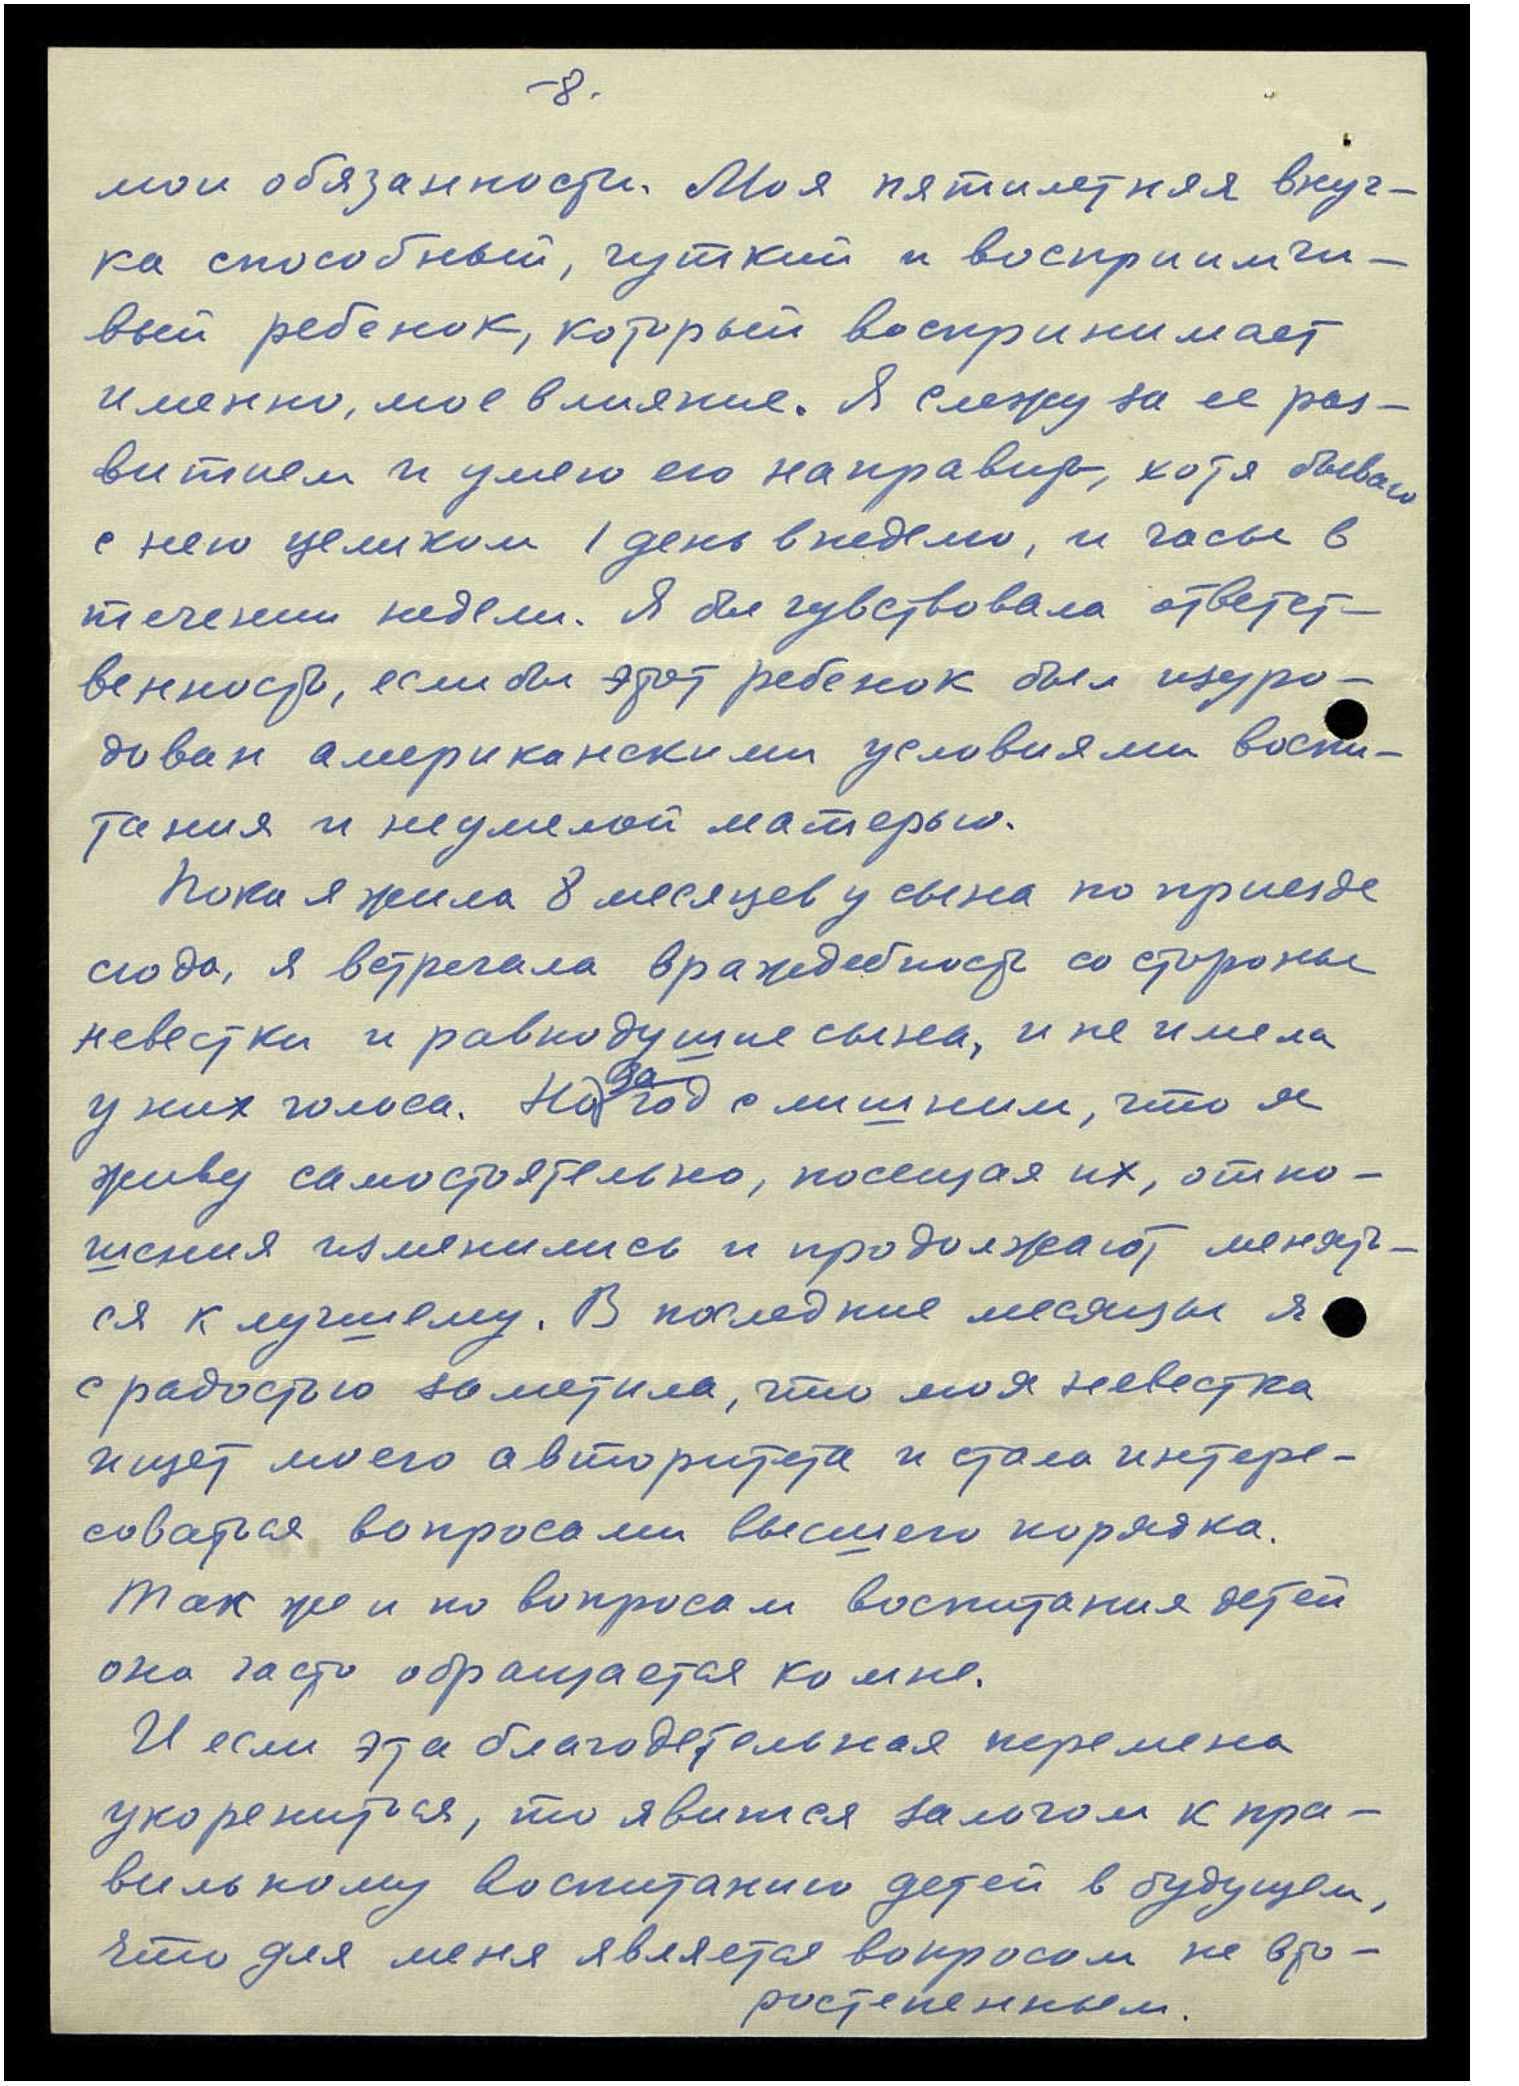 -8.
мои обязанности. Моя пятилетняя внуч-
ка способный, чуткий и восприимчи-
вый ребенок, который воспринимает
именно, мое влияние. Я слежу за ее раз-
витием и умею его направить, хотя бываю
с нею целиком 1 день в неделю, и часы в
течении недели. Я бы чувствовала ответст-
венность, если бы этот ребенок был изуро-
дован американскими условиями воспи-
тания и неумелой матерью.
Пока я жила 8 месяцев у сына по приезде
сюда, я встречала враждебность со стороны
невестки и равнодушие сына, и не имела
у них голоса. Но за год с лишним, что я
живу самостоятельно, посещая их, отно-
шения изменились и продолжают менять-
ся к лучшему. В последние месяцы я
с радостью заметила, что моя невестка
ищет моего авторитета и стала интере-
соваться вопросами высшего порядка.
Так же и по вопросам воспитания детей
она часто обращается ко мне.
И если эта благодетельная перемена
укоренится, то явится залогом к пра-
вильному воспитанию детей в будущем,
что для меня является вопросом не вто-
ростепенным.